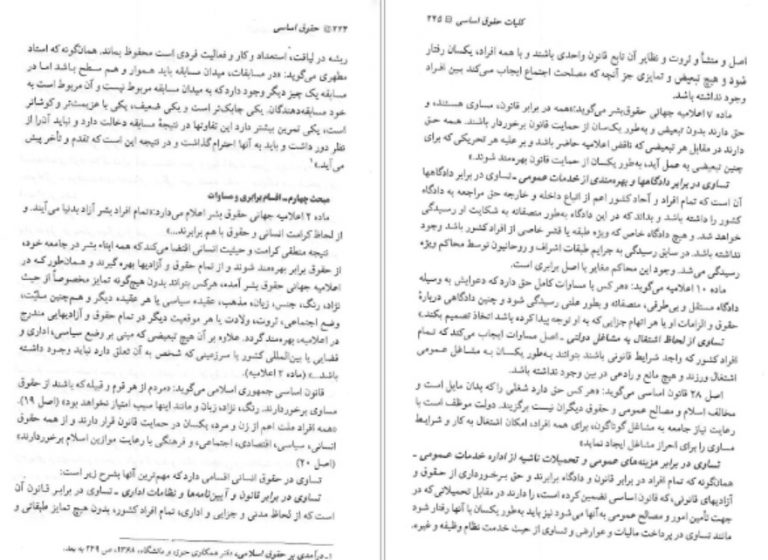 ۲۲۴ □ حقوق اساسی
ریشه در لیاقت، استعداد و کار و فعالیت فردی است محفوظ بماند. همان‌گونه که استاد
مطهری می‌گوید: «در مسابقات، میدان مسابقه باید هموار و هم سطح باشد اما در
مسابقه یک چیز دیگر وجود دارد که به میدان مسابقه مربوط نیست و آن مربوط است به
خود مسابقه‌دهندگان. یکی چابک‌تر است و یکی ضعیف، یکی با عزیمت‌تر و کوشاتر
است، یکی تمرین بیشتر دارد این تفاوتها در نتیجهٔ مسابقه دخالت دارد و نباید آن را از
نظر دور داشت و باید به آنها احترام گذاشت و در نتیجه این است که تقدم و تأخر پیش
می‌آید.»۱
مبحث چهارم ـ اقسام برابری و مساوات
ماده ۲ اعلامیه جهانی حقوق بشر اعلام می‌دارد: «تمام افراد بشر آزاد بدنیا می‌آیند. و
از لحاظ کرامت انسانی و حقوق با هم برابرند...»
نتیجه منطقی کرامت و حیثیت انسانی اقتضا می‌کند که همه ابناء بشر در جامعه خود،
از حقوق برابر بهره‌مند شوند و از تمام حقوق و آزادیها بهره گیرند و همان‌طور که در
اعلامیه جهانی حقوق بشر آمده، هرکس بتواند بدون هیچ‌گونه تمایز مخصوصاً از حیث
نژاد، رنگ، جنس، زبان، مذهب، عقیده سیاسی یا هر عقیده دیگر و هم‌چنین ملیّت،
وضع اجتماعی، ثروت، ولادت یا هر موقعیت دیگر در تمام حقوق و آزادیهایی مندرج
در اعلامیه، بهره‌مند گردد. علاوه بر آن هیچ تبعیضی که مبنی بر وضع سیاسی، اداری و
قضایی یا بین‌المللی کشور یا سرزمینی که شخص به آن تعلق دارد نباید وجود داشته
باشد...» (ماده ۲ اعلامیه).
قانون اساسی جمهوری اسلامی می‌گوید: «مردم از هر قوم و قبیله که باشند از حقوق
مساوی برخوردارند. رنگ، نژاد، زبان و مانند اینها سبب امتیاز نخواهد بود» (اصل ۱۹).
«همه افراد ملت اعم از زن و مرد، یکسان در حمایت قانون قرار دارند و از همه حقوق
انسانی، سیاسی، اقتصادی، اجتماعی، و فرهنگی با رعایت موازین اسلام برخوردارند»
(اصل ۲۰)
تساوی در حقوق انسانی اقسامی دارد که مهم‌ترین آنها بشرح زیر است:
تساوی در برابر قانون و آیین‌نامه‌ها و نظامات اداری ـ تساوی در برابر قانون آن
است که از لحاظ مدنی و جزایی و اداری، تمام افراد کشور، بدون هیچ تمایز طبقاتی و
۱ـ درآمدی بر حقوق اسلامی، دفتر همکاری حوزه و دانشگاه، ۱۳۶۸، ص ۲۲۹ به بعد.
کلیات حقوق اساسی □ ۲۲۵
اصل و منشأ و ثروت و نظایر آن تابع قانون واحدی باشند و با همه افراد، یکسان رفتار
شود و هیچ تبعیض و تمایزی جز آنچه که مصلحت اجتماع ایجاب می‌کند بین افراد
وجود نداشته باشد.
ماده ۷ اعلامیه جهانی حقوق‌بشر می‌گوید: «همه در برابر قانون، مساوی هستند، و
حق دارند بدون تبعیض و به‌طور یکسان از حمایت قانون برخوردار باشند. همه حق
دارند در مقابل هر تبعیضی که ناقض اعلامیه حاضر باشد و بر علیه هر تحریکی که برای
چنین تبعیضی به عمل آید، به‌طور یکسان از حمایت قانون بهره‌مند شوند.»
تساوی در برابر دادگاهها و بهره‌مندی از خدمات عمومی ـ تساوی در برابر دادگاهها
آن است که تمام افراد و آحاد کشور اعم از اتباع داخله و خارجه حق مراجعه به دادگاه
کشور را داشته باشد و بداند که در این دادگاه به‌طور منصفانه به شکایت او رسیدگی
خواهد شد. و هیچ دادگاه خاص که ویژه طبقه یا قشر خاصی از افراد کشور باشد وجود
نداشته باشد. در سابق رسیدگی به جرایم طبقات اشراف و روحانیون توسط محاکم ویژه
رسیدگی می‌شد. وجود این محاکم مغایر با اصل برابری است.
ماده ۱۰ اعلامیه می‌گوید: «هر کس با مساوات کامل حق دارد که دعوایش به وسیله
دادگاه مستقل و بی‌طرفی، منصفانه و بطور علنی رسیدگی شود و چنین دادگاهی دربارهٔ
حقوق و الزامات او یا هر اتهام جزایی که به او توجه پیدا کرده باشد اتخاذ تصمیم بکند.»
تساوی از لحاظ اشتغال به مشاغل دولتی ـ اصل مساوات ایجاب می‌کند که تمام
افراد کشور که واجد شرایط قانونی باشند بتوانند به‌طور یکسان به مشاغل عمومی
اشتغال ورزند و هیچ مانع و رادعی در بین وجود نداشته باشد.
اصل ۲۸ قانون اساسی می‌گوید: «هر کس حق دارد شغلی را که بدان مایل است و
مخالف اسلام و مصالح عمومی و حقوق دیگران نیست برگزیند. دولت موظف است با
رعایت نیاز جامعه به مشاغل گوناگون، برای همه افراد، امکان اشتغال به کار و شرایط
مساوی را برای احراز مشاغل ایجاد نماید»
تساوی در برابر هزینه‌های عمومی و تحمیلات ناشیه از اداره خدمات عمومی ـ
همانگونه که تمام افراد در برابر قانون و دادگاه برابرند و حق برخورداری از حقوق و
آزادیهای قانونی، که قانون اساسی تضمین کرده است، را دارند در مقابل تحمیلاتی که در
جهت تأمین امور و مصالح عمومی به آنها می‌شود نیز باید به‌طور یکسان با آنها رفتار شود
مانند تساوی در پرداخت مالیات و عوارض و تساوی از حیث خدمت نظام وظیفه و غیره.